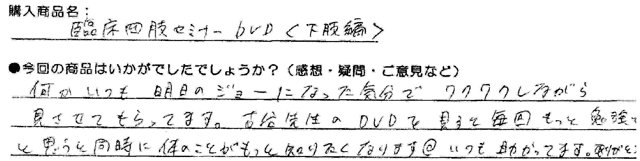 購入商品名:
臨床四肢セミナーDVD<下肢編>
●今回の商品はいかがでしたでしょうか?(感想・疑問・ご意見など)
何かいつも明日のジョーになった気分でワクワクしながら
見させてもらってます。古谷先生のDVDを見ると毎回もっと勉強で
と思うと同時に体のことがもっと知りたくなります@いつも助かってます。ありがと